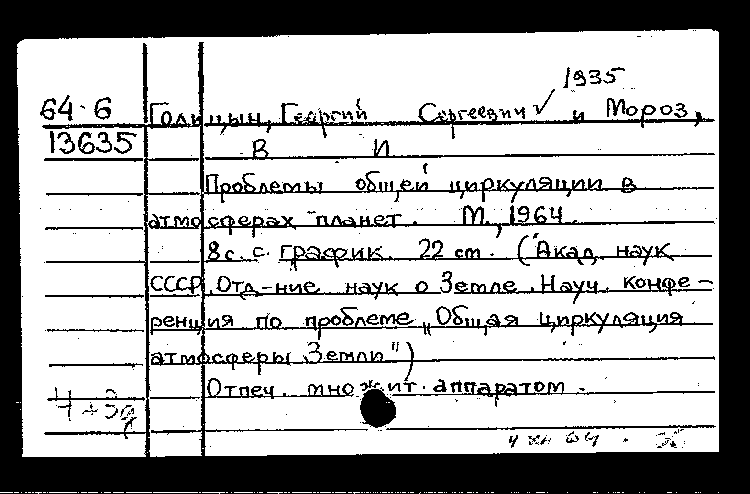 1935
64-6 Голицын, Георгий Сергеевич ✓ и Мороз,
13635 В И
Проблемы общей циркуляции в
атмосферах планет. М., 1964.
8 с. с график. 22 cm. (Акад. наук
СССР. Отд-ние наук о Земле. Науч. конфе-
ренция по проблеме „Общая циркуляция
атмосферы Земли")
Отпеч. множит. аппаратом.